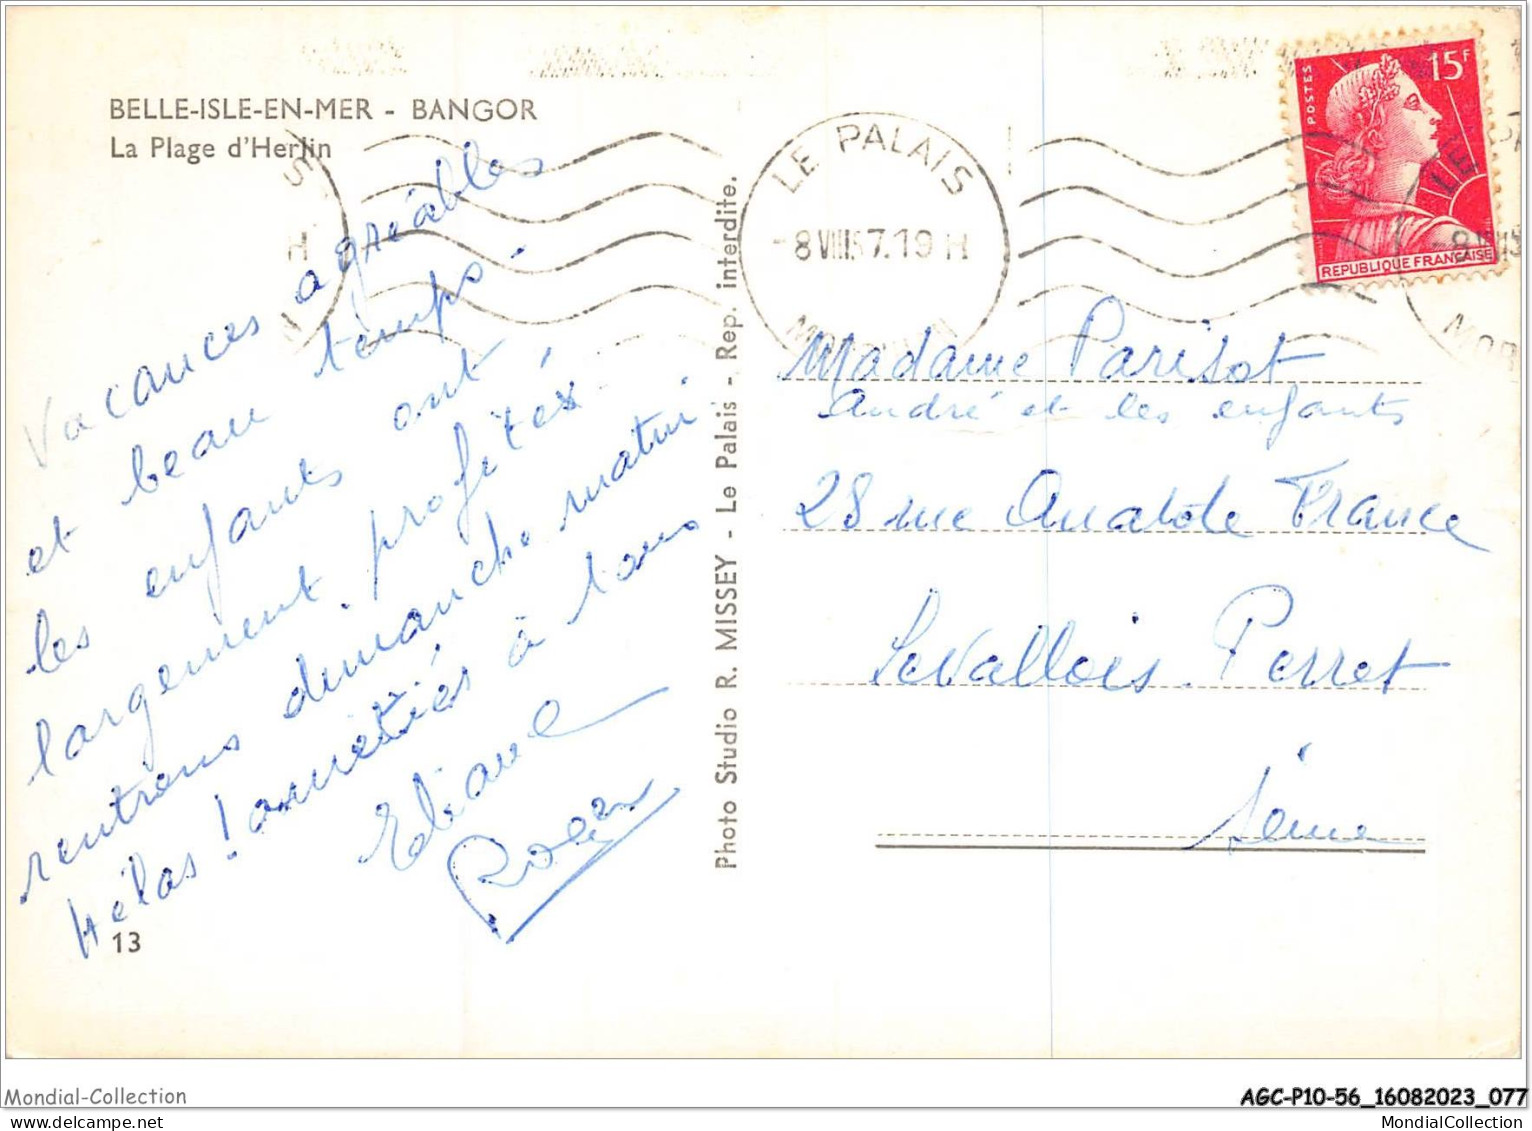 BELLE-ISLE-EN-MER - BANGOR
La Plage d'Herlin
Vacances agréables
et beau temps.
les enfants ont
largement profités
rentrons dimanche matin
Hélas ! amitiés à tous
Eliane
Roger
13
Photo Studio R. MISSEY - Le Palais - Rep. interdite.
LE PALAIS
-8 VIII 57.19 H
POSTES
15F
REPUBLIQUE FRANÇAISE
Madame Parisot
André et les enfants
28 rue Anatole France
Levallois Perret
Seine
Mondial-Collection
AGC-P10-56_16082023_077
MondialCollection